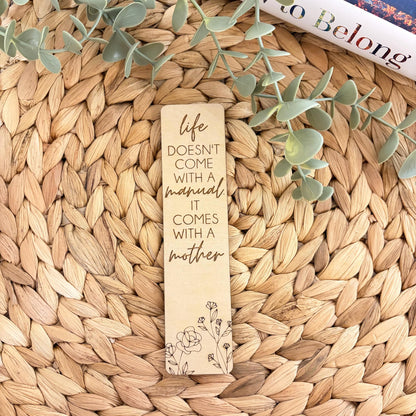 to Belong
life
DOESN'T
COME
WITH A
manual
IT
COMES
WITH A
mother